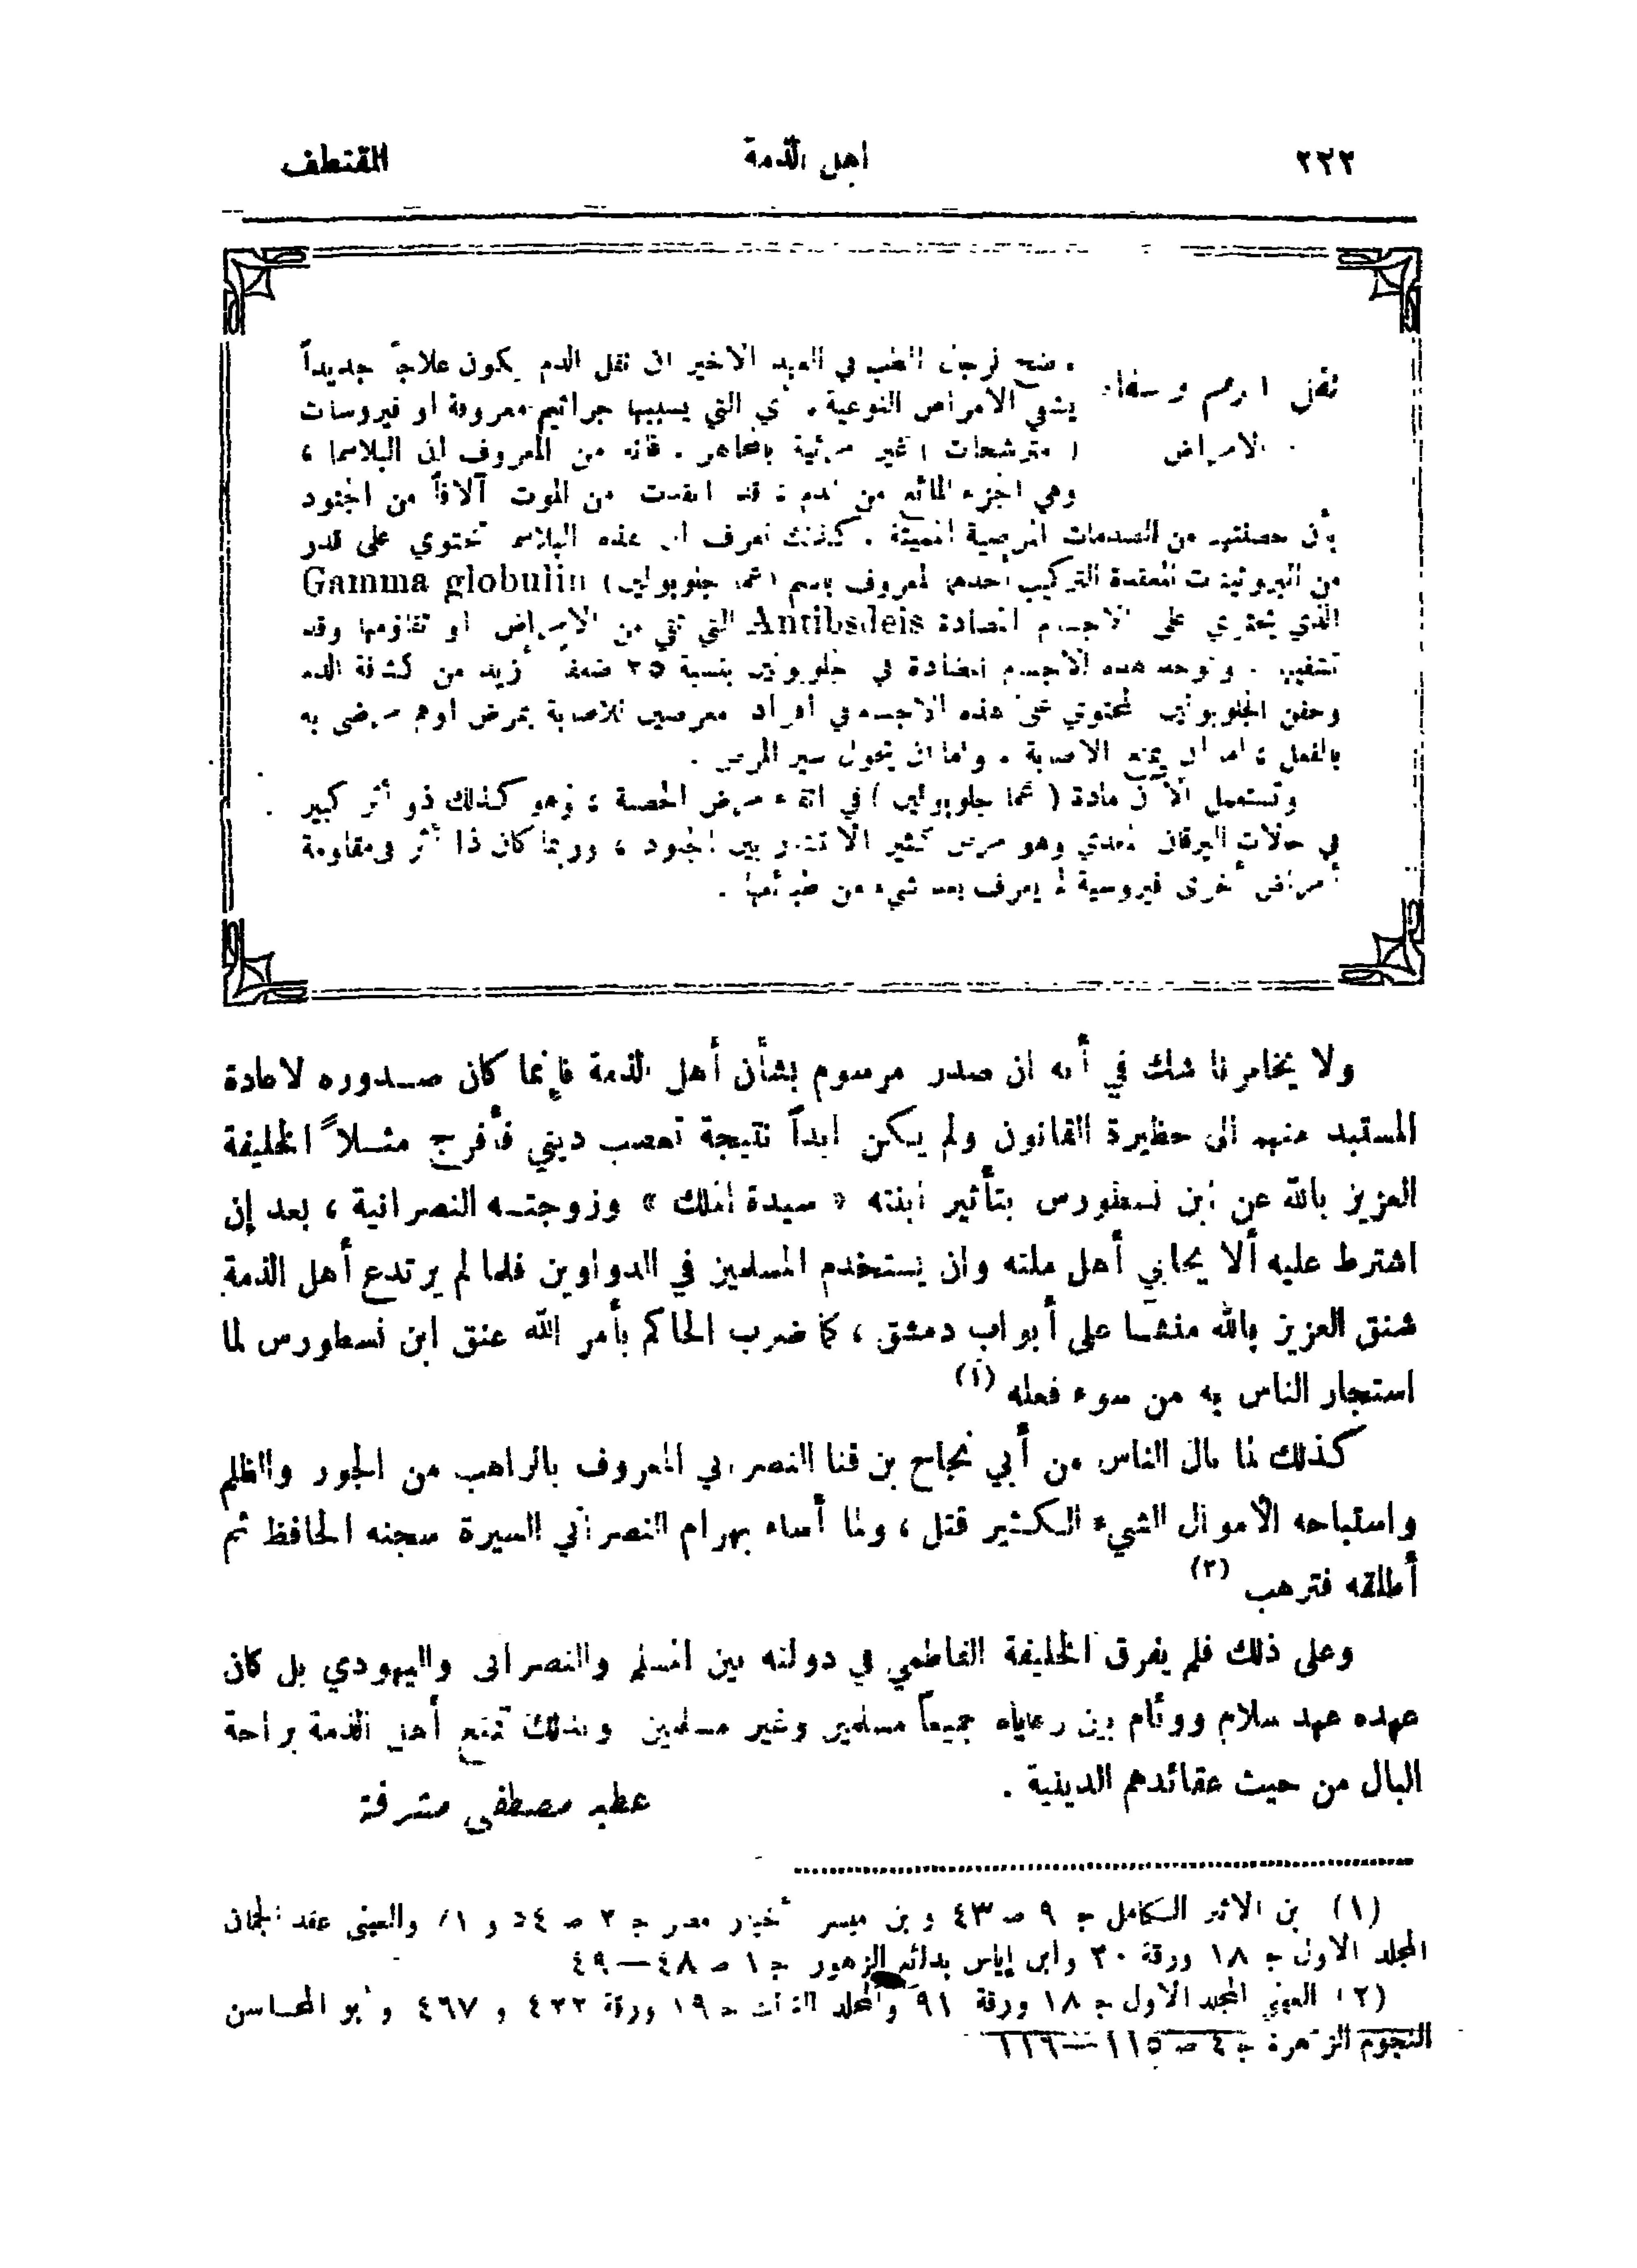 ٢٢٢ اهل الذمة المقتطف
نقل الدم وشفاء
الامراض
وضح لرجال الطب في العهد الاخير ان نقل الدم يكون علاجاً جديداً
يشفي الامراض النوعية . أي التي يسببها جراثيم معروفة او فيروسات
( مترشحات ) غير مرئية بالمجاهر . فانه من المعروف ان البلاسما ،
وهي الجزء المائع من الدم ، قد انقذت من الموت آلافاً من الجنود
بأن حصنتهم من الصدمات المرضية المميتة . كذلك نعرف ان هذه البلاسما تحتوي على قدر
من البروتينات المعقدة التركيب احدها المعروف باسم (غما جلوبولين) Gamma globulin
الذي يحتوي على الاجسام المضادة Antibsdeis التي تقي من الامراض او تقاومها وقد
تشفيها . وتوجد هذه الاجسام المضادة في جلوبولين بنسبة ٢٥ ضعفاً أزيد من كثافة الدم
وحقن الجلوبولين المحتوي على هذه الاجسام في أفراد معرضين للاصابة بمرض اوهم مرضى به
بالفعل ، اما ان يمنع الاصابة . واما ان يحول سير المرض .
وتستعمل الآن مادة ( غما جلوبولين ) في اتقاء مرض الحصبة ، وهو كذلك ذو أثر كبير
في حالات اليرقان المعدي وهو مرض كثير الانتشار بين الجنود ، وربما كان ذا أثر في مقاومة
أمراض أخرى فيروسية لم يعرف بعد شيء من طبائعها .
ولا يخامرنا شك في أنه ان صدر مرسوم بشأن أهل الذمة فإنما كان صدوره لاعادة
المستبد منهم الى حظيرة القانون ولم يكن ابداً نتيجة تعصب ديني فأفرج مثلاً الخليفة
العزيز بالله عن ابن نسطورس بتأثير ابنته « سيدة الملك » وزوجته النصرانية ، بعد إن
اشترط عليه ألا يحابي أهل ملته وان يستخدم المسلمين في الدواوين فلما لم يرتدع أهل الذمة
شنق العزيز بالله منشا على أبواب دمشق ، كما ضرب الحاكم بأمر الله عنق ابن نسطورس لما
استجار الناس به من سوء فعله (١)
كذلك لما نال الناس من أبي نجاح بن قنا النصراني المعروف بالراهب من الجور والظلم
واستباحه الاموال الشيء الكثير قتل ، ولما أساء بهرام النصراني السيرة سجنه الحافظ ثم
أطلقه فترهب (٢)
وعلى ذلك فلم يفرق الخليفة الفاطمي في دولته بين المسلم والنصراني واليهودي بل كان
عهده عهد سلام ووئام بين رعاياه جميعاً مسلمين وغير مسلمين وبذلك تمتع أهل الذمة براحة
البال من حيث عقائدهم الدينية .
عطيه مصطفى مشرفة
(١) ابن الاثير الكامل ج ٩ ص ٤٣ وابن ميسر أخبار مصر ج ٢ ص والعيني عقد الجمان
المجلد الاول ج ١٨ ورقة ٣٠ وابن إياس بدائع الزهور ج ١ ص ٤٨ — ٤٩
(٢) العيني المجلد الاول ج ١٨ ورقة ٩١ والمجلد الثالث ج ١٩ ورقة ٤٢٢ و ٤٦٧ وأبو المحاسن
النجوم الزاهرة ج ٤ ص ١١٥ — ١١٦